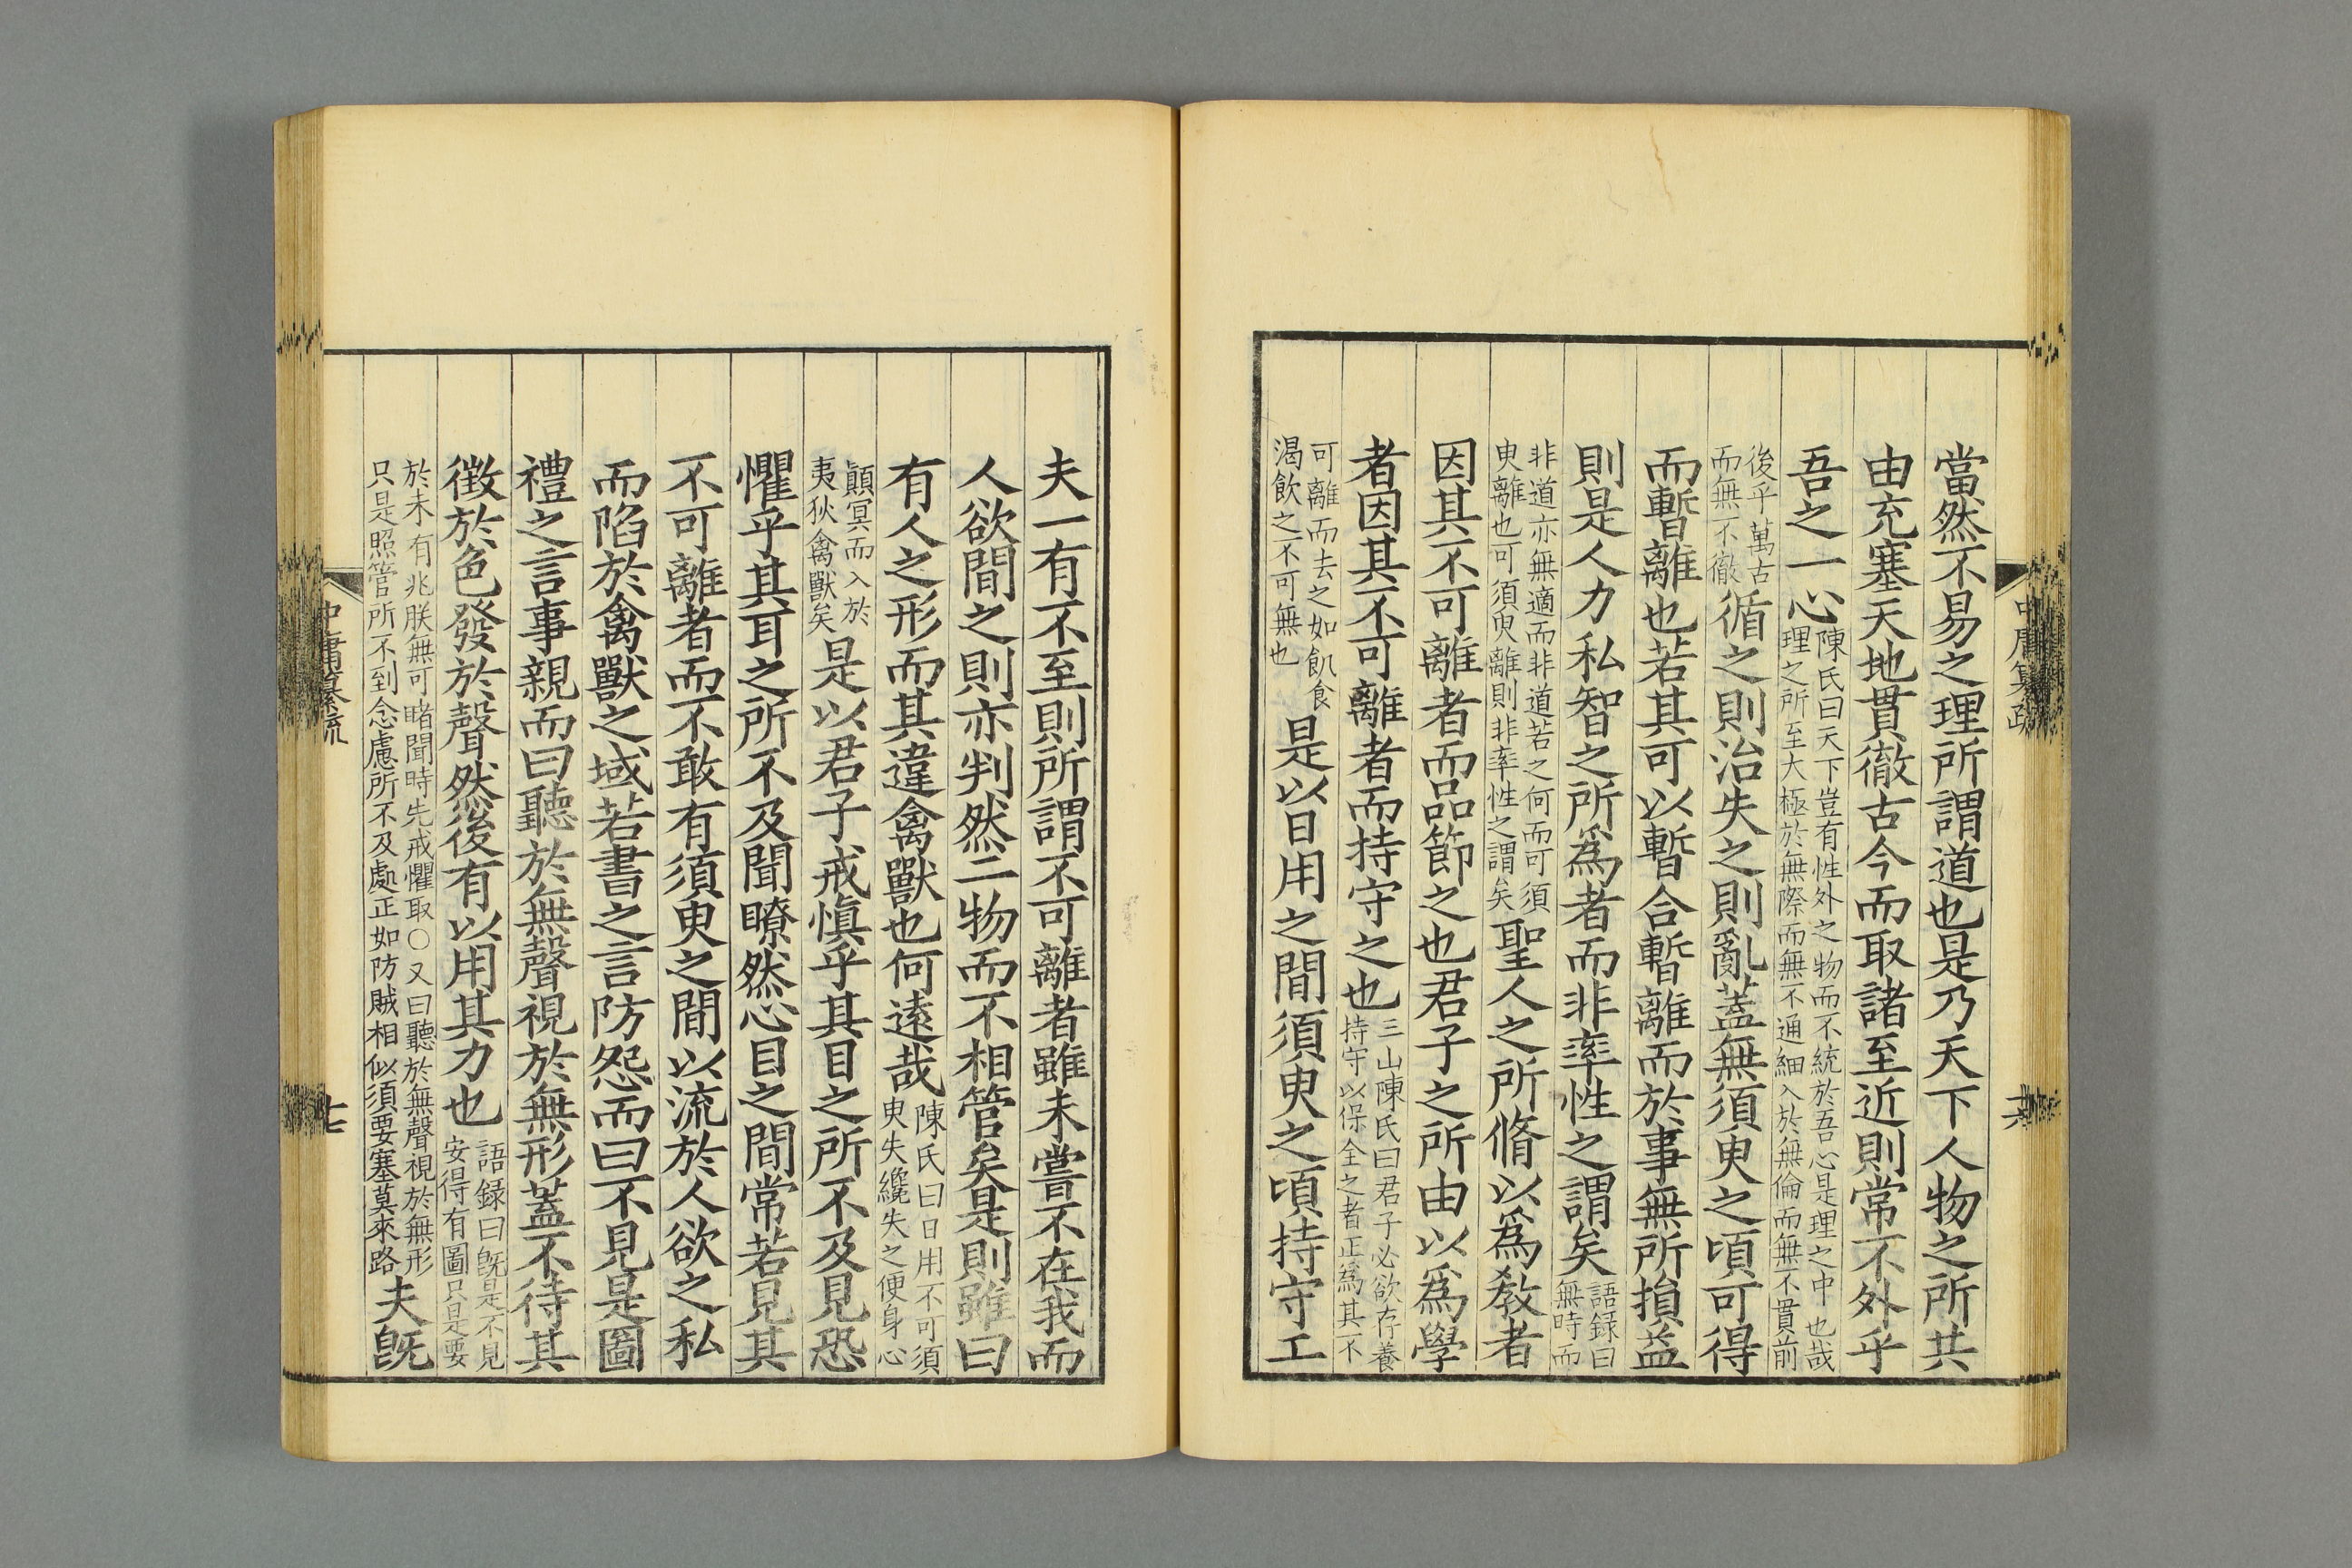 當然不易之理所謂道也是乃天下人物之所共
由充塞天地貫徹古今而取諸至近則常不外乎
吾之一心陳氏曰天下豈有性外之物而不統於吾心是理之中也哉
理之所至大極於無際而無不通細入於無倫而無不貫前
後乎萬古
而無不徹循之則治失之則亂蓋無須臾之頃可得
而暫離也若其可以暫合暫離而於事無所損益
則是人力私智之所爲者而非率性之謂矣語録曰
無時而
非道亦無適而非道若之何而可須
臾離也可須臾離則非率性之謂矣聖人之所脩以爲教者
因其不可離者而品節之也君子之所由以爲學
者因其不可離者而持守之也三山陳氏曰君子必欲存養
持守以保全之者正為其不
可離而去之如飢食
渴飲之不可無也是以日用之間須臾之頃持守工
中庸纂疏
夫一有不至則所謂不可離者雖未嘗不在我而
人欲間之則亦判然二物而不相管矣是則雖曰
有人之形而其違禽獸也何遠哉陳氏曰日用不可須
臾失纔失之便身心
顚冥而入於
夷狄禽獸矣是以君子戒慎乎其目之所不及見恐
懼乎其耳之所不及聞瞭然心目之間常若見其
不可離者而不敢有須臾之間以流於人欲之私
而陷於禽獸之域若書之言防怨而曰不見是圖
禮之言事親而曰聽於無聲視於無形蓋不待其
徵於色發於聲然後有以用其力也語録曰旣是不見
安得有圖只是要
於未有兆朕無可睹聞時先戒懼取○又曰聽於無聲視於無形
只是照管所不到念慮所不及處正如防賊相似須要塞其來路夫旣
中庸纂疏
七